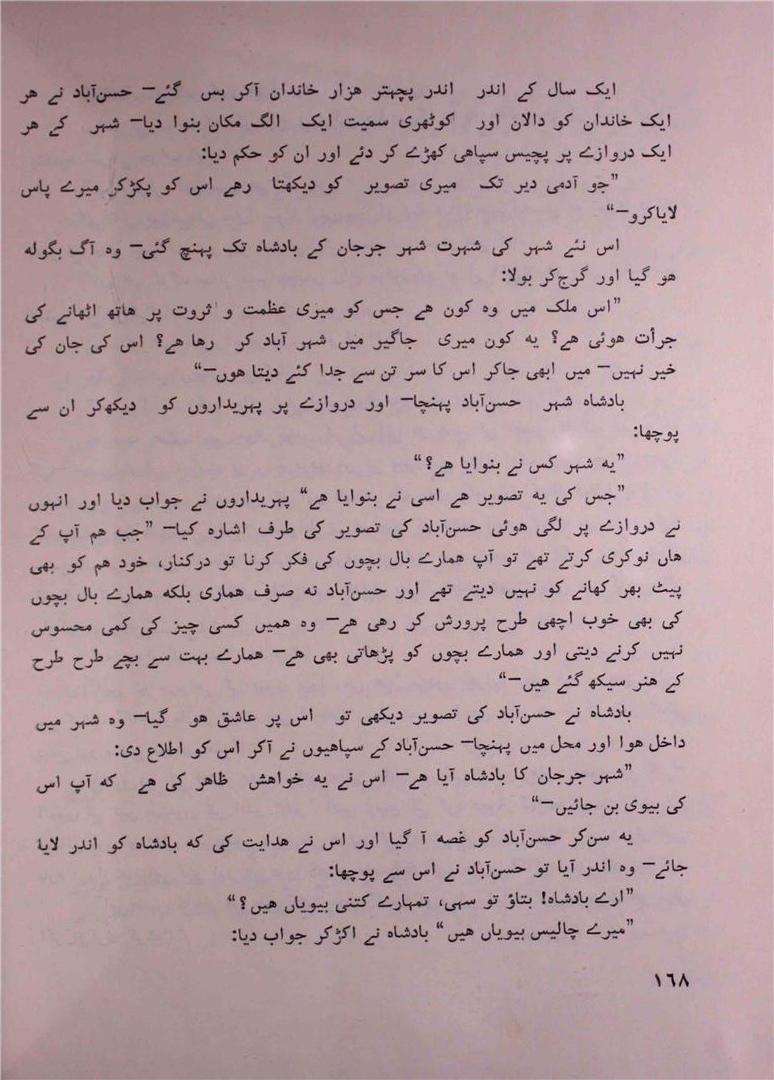 ایک سال کے اندر اندر پچہتر ھزار خاندان آکر بس گئے— حسن‌آباد نے ھر
ایک خاندان کو دالان اور کوٹھری سمیت ایک الگ مکان بنوا دیا— شہر کے ھر
ایک دروازے پر پچیس سپاھی کھڑے کر دئے اور ان کو حکم دیا:
”جو آدمی دیر تک میری تصویر کو دیکھتا رھے اس کو پکڑکر میرے پاس
لایاکرو—“
اس نئے شہر کی شہرت شہر جرجان کے بادشاہ تک پہنچ گئی— وہ آگ بگولہ
ھو گیا اور گرج‌کر بولا:
”اس ملک میں وہ کون ھے جس کو میری عظمت و ثروت پر ھاتھ اٹھانے کی
جرأت ھوئی ھے؟ یہ کون میری جاگیر میں شہر آباد کر رھا ھے؟ اس کی جان کی
خیر نہیں— میں ابھی جاکر اس کا سر تن سے جدا کئے دیتا ھوں—“
بادشاہ شہر حسن‌آباد پہنچا— اور دروازے پر پہریداروں کو دیکھ‌کر ان سے
پوچھا:
”یہ شہر کس نے بنوایا ھے؟“
”جس کی یہ تصویر ھے اسی نے بنوایا ھے“ پہریداروں نے جواب دیا اور انہوں
نے دروازے پر لگی ھوئی حسن‌آباد کی تصویر کی طرف اشارہ کیا— ”جب ھم آپ کے
ھاں نوکری کرتے تھے تو آپ ھمارے بال بچوں کی فکر کرنا تو درکنار، خود ھم کو بھی
پیٹ بھر کھانے کو نہیں دیتے تھے اور حسن‌آباد نہ صرف ھماری بلکہ ھمارے بال بچوں
کی بھی خوب اچھی طرح پرورش کر رھی ھے— وہ ھمیں کسی چیز کی کمی محسوس
نہیں کرنے دیتی اور ھمارے بچوں کو پڑھاتی بھی ھے— ھمارے بہت سے بچے طرح طرح
کے ھنر سیکھ گئے ھیں—“
بادشاہ نے حسن‌آباد کی تصویر دیکھی تو اس پر عاشق ھو گیا— وہ شہر میں
داخل ھوا اور محل میں پہنچا— حسن‌آباد کے سپاھیوں نے آکر اس کو اطلاع دی:
”شہر جرجان کا بادشاہ آیا ھے— اس نے یہ خواھش ظاھر کی ھے کہ آپ اس
کی بیوی بن جائیں—“
یہ سن‌کر حسن‌آباد کو غصہ آ گیا اور اس نے ھدایت کی کہ بادشاہ کو اندر لایا
جائے— وہ اندر آیا تو حسن‌آباد نے اس سے پوچھا:
”ارے بادشاہ! بتاؤ تو سہی، تمہارے کتنی بیویاں ھیں؟“
”میرے چالیس بیویاں ھیں“ بادشاہ نے اکڑکر جواب دیا:
١٦٨